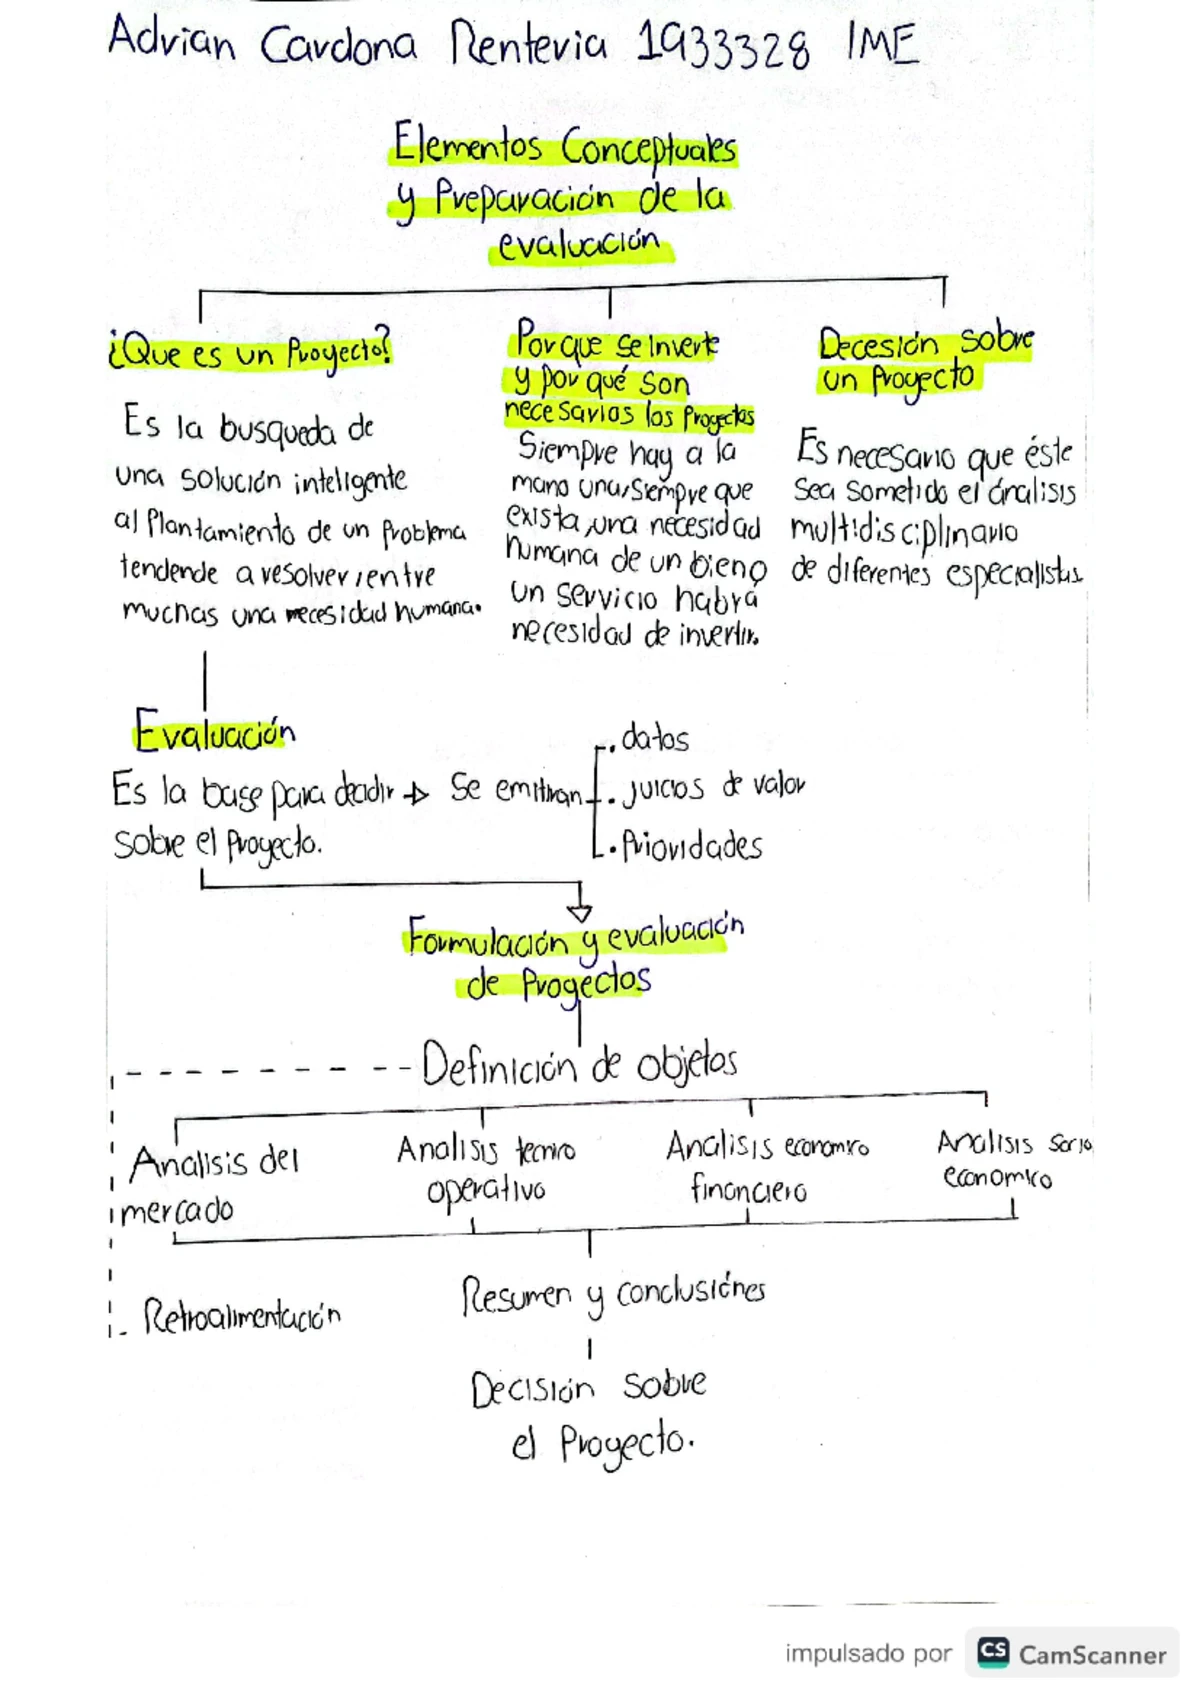 Adrian Cardona Renteria 1933328 IME
Elementos Conceptuales
y Preparación de la
evaluación
¿Que es un Proyecto?
Es la busqueda de
una solución inteligente
al Plantamiento de un Problema
tendende a resolver, entre
muchas una necesidad humana.
Por que se Inverte
y por qué son
necesarios los Proyectos
Siempre hay a la
mano una, siempre que
exista, una necesidad
humana de un bien o
un servicio habrá
necesidad de invertir.
Decesión sobre
un Proyecto
Es necesario que éste
sea sometido el ánalisis
multidisciplinario
de diferentes especialistas
Evaluación
Es la base para decidir → Se emitiran
sobre el Proyecto.
. datos
. juicios de valor
. Prioridades
Formulación y evaluación
de Proyectos
Definición de objetos
Analisis del
mercado
Analisis tecnico
operativo
Analisis economico
financiero
Analisis socio
economico
Retroalimentación
Resumen y conclusiónes
Decisión sobre
el Proyecto.
impulsado por CS CamScanner